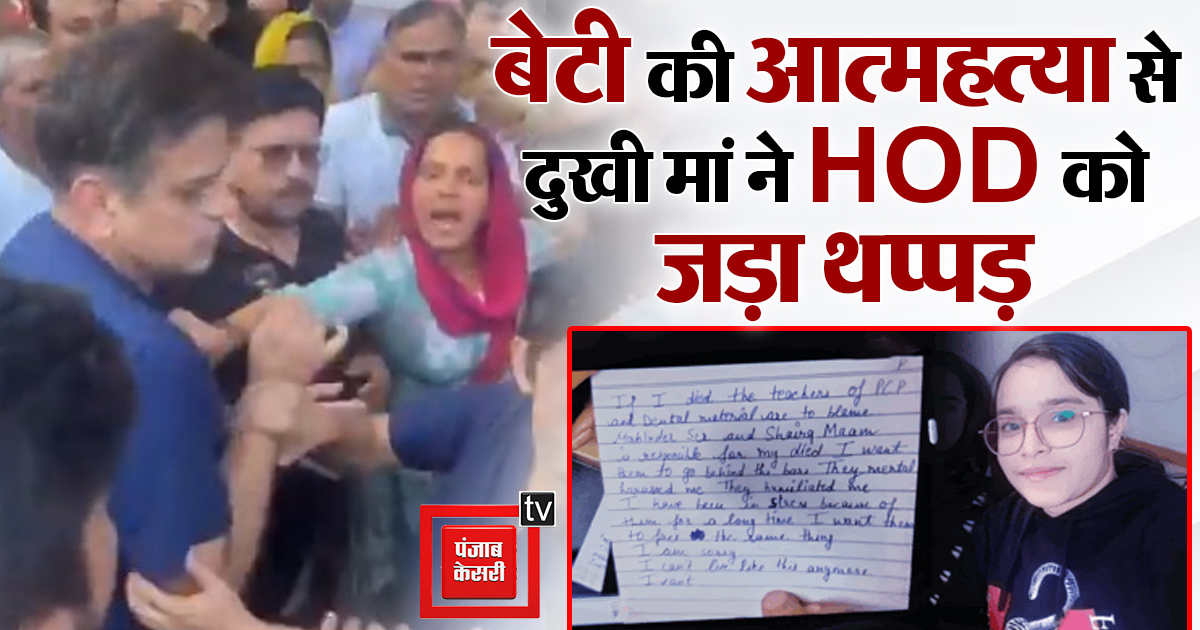 बेटी की आत्महत्या से
दुखी मां ने HOD को
जड़ा थप्पड़
tv
पंजाब
केसरी
P
If I died the teachers of P.C.P
and Dental material are to blame.
Sir and Maam
is for my died I want
them to go behind the bars They mental
harassed me They humiliated me
I have been in stress because of
them for a long time I want them
to face the same thing
I am sorry
I can't live like this anymore
I want